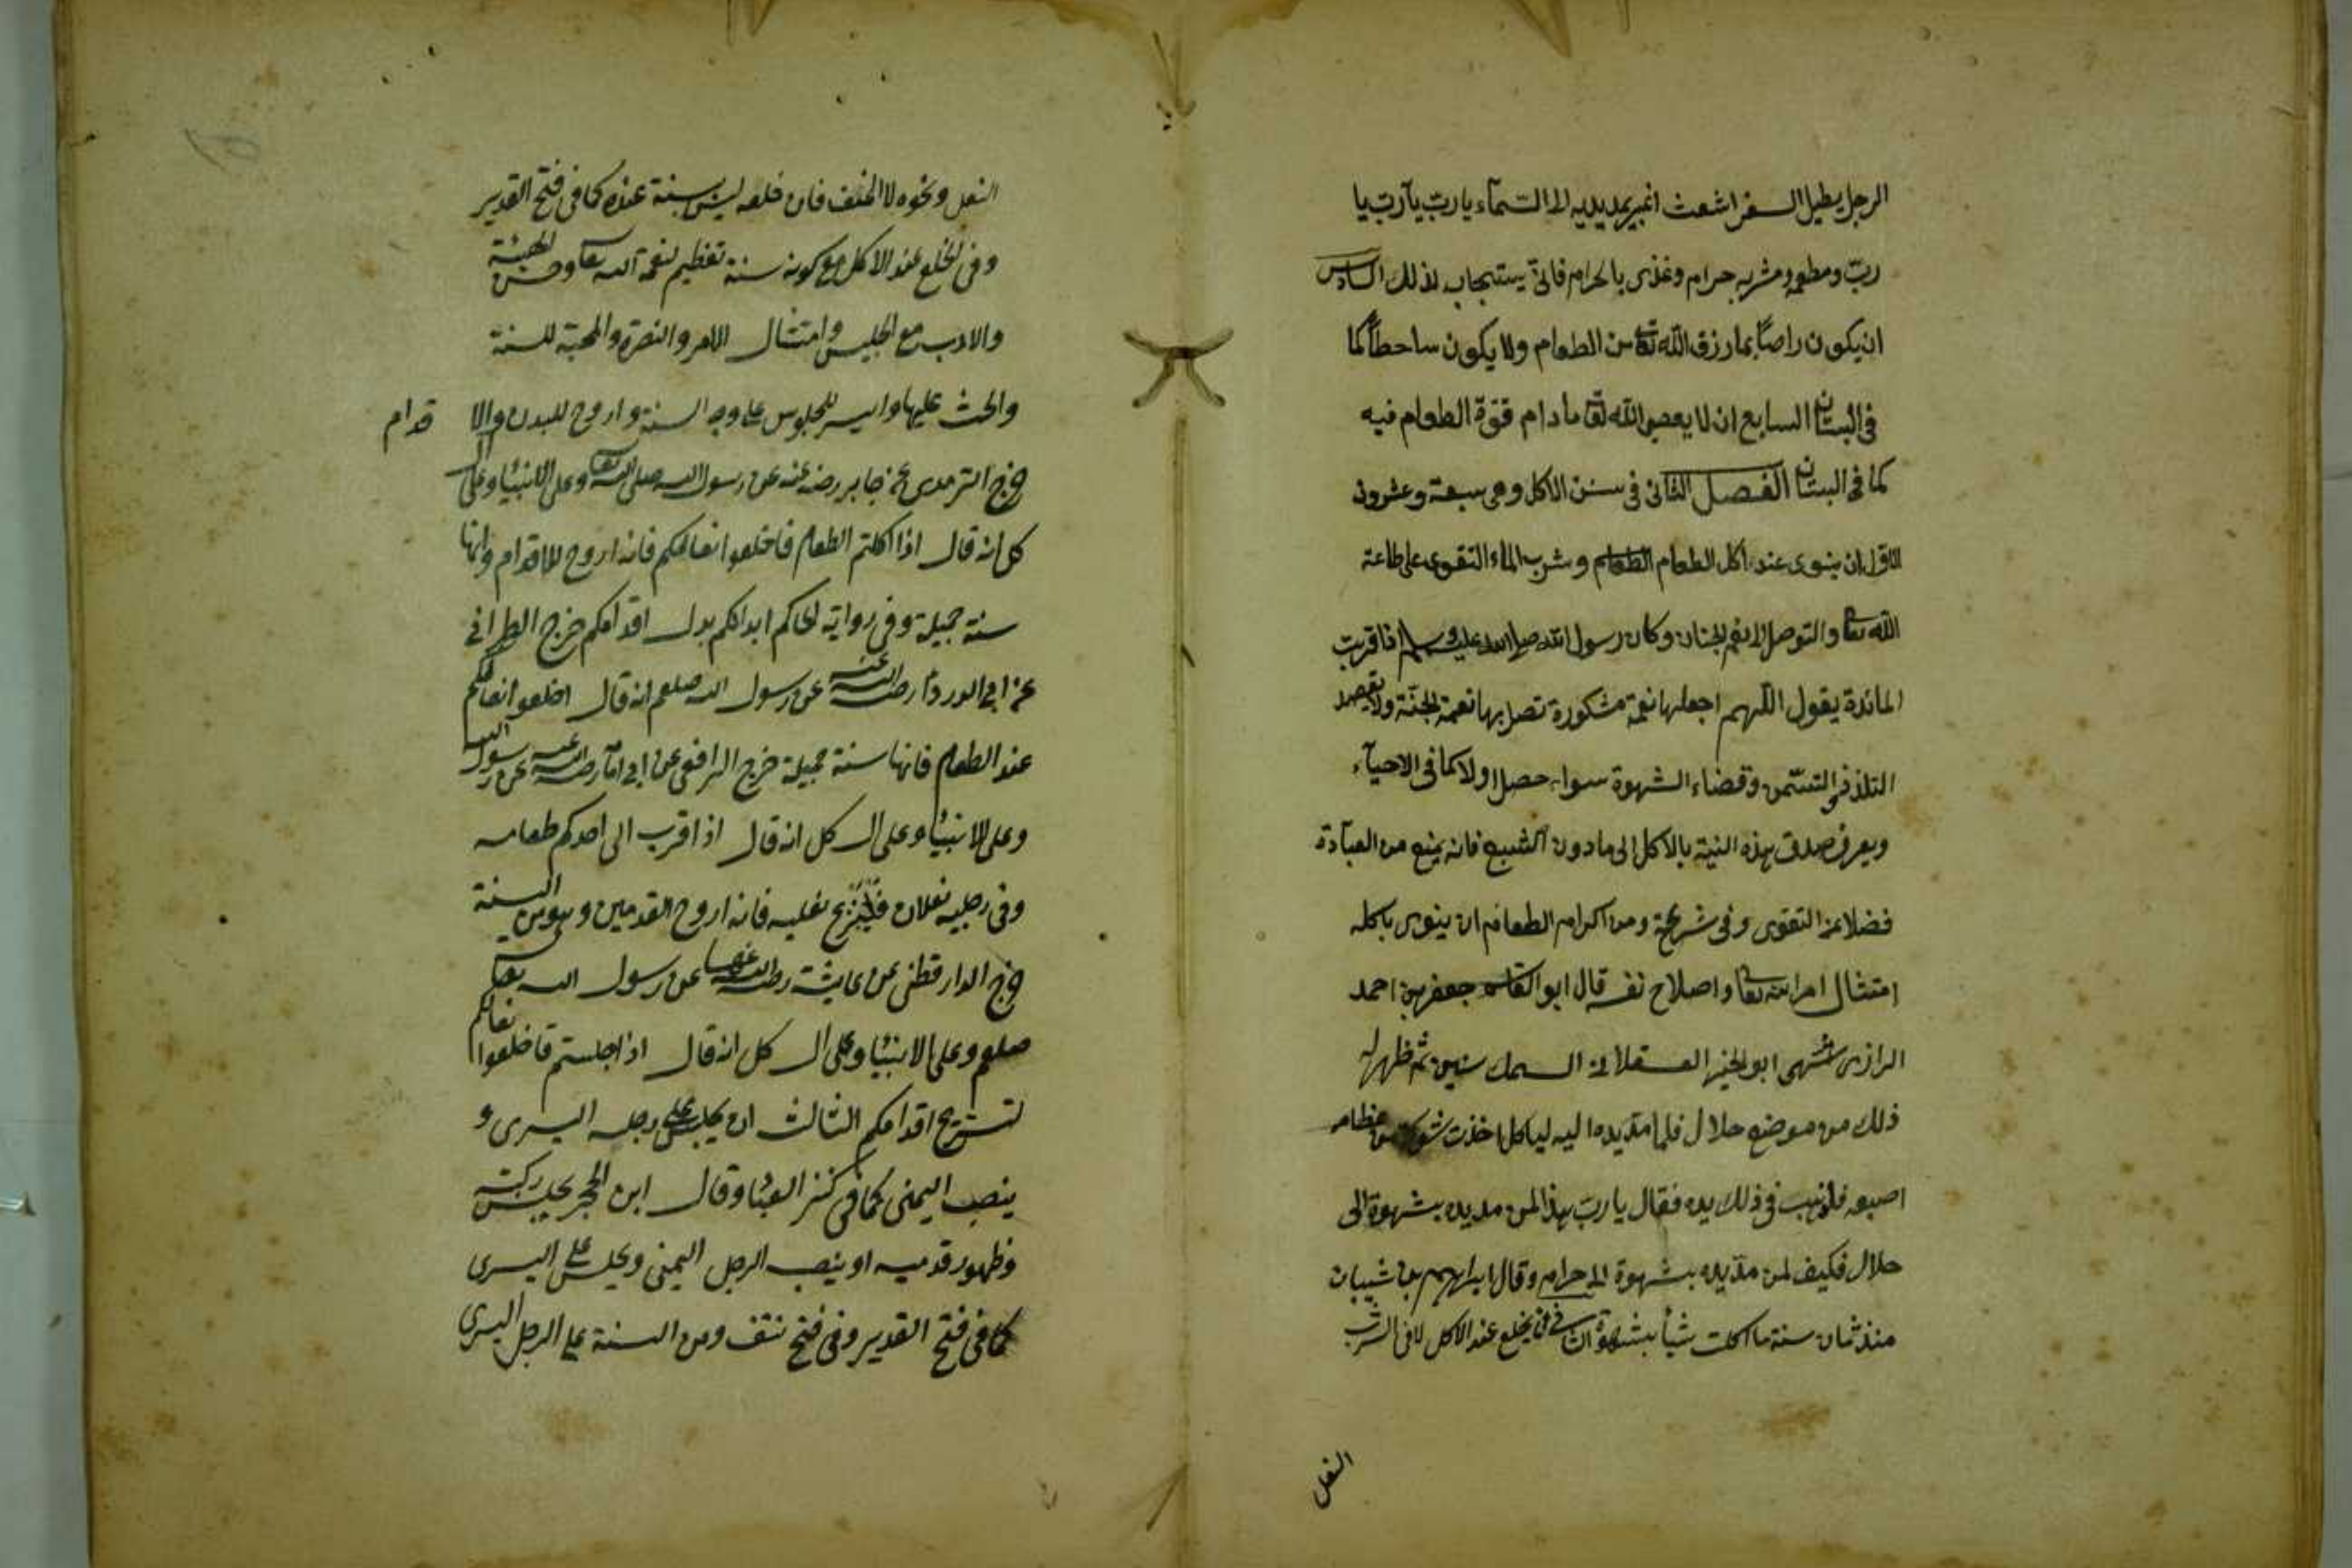 الرجل يطيل السفر اشعث اغبر يمد يديه الى السمآء يا ربّ يآربّ يا
ربّ ومطعمه ومشربه حرام وغذى بالحرام فانّى يستجاب لذلك السادس
ان يكون راضياً بما رزق الله تعا من الطعام ولا يكون ساخطاً كما
فى البستان السابع ان لا يعصى الله تعا ما دام قوّة الطعام فيه
كما فى البستان الفصل الثانى فى سنن الاكل وهى سبعة وعشرون
الاول ان ينوى عند اكل الطعام الطعام وشرب الماء التقوى على طاعة
الله تعا والتوصل الى نعم الجنان وكان رسول الله صلى الله عليه وسلم اذا قربت
المائدة يقول اللّهم اجعلها نعمة مشكورة تصل بها نعمة الجنّة ولا يقصد
التلذذ والتسمّن وقضاء الشهوة سواء حصل اولا كما فى الاحيآء
ويعرف صدق هذه النية بالاكل الى ما دون الشبع فانه يمنع من العبآدة
فضلا عن التقوى وفى شرعة ومن اكرام الطعام ان ينوى باكله
امتثال امر الله تعا واصلاح نفسه قال ابو القاسم جعفر بن احمد
الرازى اشتهى ابو الخير العسقلانى السمك سنين ثم ظهر له
ذلك من موضع حلال فلما مدّ يده اليه لياكل اخذت شوكة من عظامه
اصبعه فذهب فى ذلك يده فقال يا ربّ هذا لمن مد يده بشهوة الى
حلال فكيف لمن مدّ يده بشهوة الى حرام وقال ابراهيم بن شيبان
منذ ثمان سنة ما اكلت شيأ بشهوة الثانى فى ان يخلع عند الاكل لا فى الشرب
النعل
النعل ونحوه لا الخف فان خلعه ليس بسنة عنده كما فى فتح القدير
وفى الخلع عند الاكل مع كونه سنة تعظيم لنعمة الله تعا وحسن الهيئة
والادب مع الجليس وامتثال الامر والنصرة والمحبة للسنة
والحث عليها وايسر للجلوس على وجه السنة واروح للبدن والا قدام
خرج الترمدى عن جابر رضه عنه عن رسول الله صلى الله تعا وعلى الانبيا وعلى ال
كل انه قال اذا اكلتم الطعام فاخلعوا نعالكم فانه اروح للاقدام وانها
سنة جميلة وفى رواية لحاكم ابدانكم بدل اقدامكم خرج الطبرانى
عن ابى الدردآ رضى الله عنه عن رسول الله صلعم انه قال اخلعوا نعالكم
عند الطعام فانها سنة جميلة خرج الرافعى عن ابى امآ رضى الله عنه عن رسول الله
وعلى الانبيا وعلى ال كل انه قال اذا قرب الى احدكم طعامه
وفى رجليه نعلان فلينزع نعليه فانه اروح القدمين وهو من السنة
خرج الدار قطنى عن عايشة رضى الله عنها عن رسول الله تعا
صلعم وعلى الانبيا وعلى ال كل انه قال اذا جلستم فاخلعوا نعالكم
لتستريح اقدامكم الثالث ان يجلس على رجله اليسرى و
ينصب اليمنى كما فى كنز العبا وقال ابن الحجر يجلس ركبته
وظهور قدميه او ينصب الرجل اليمنى ويجلس على اليسرى
كما فى فتح القدير وفى فتح نتف ومن السنة على الرجل اليسرى